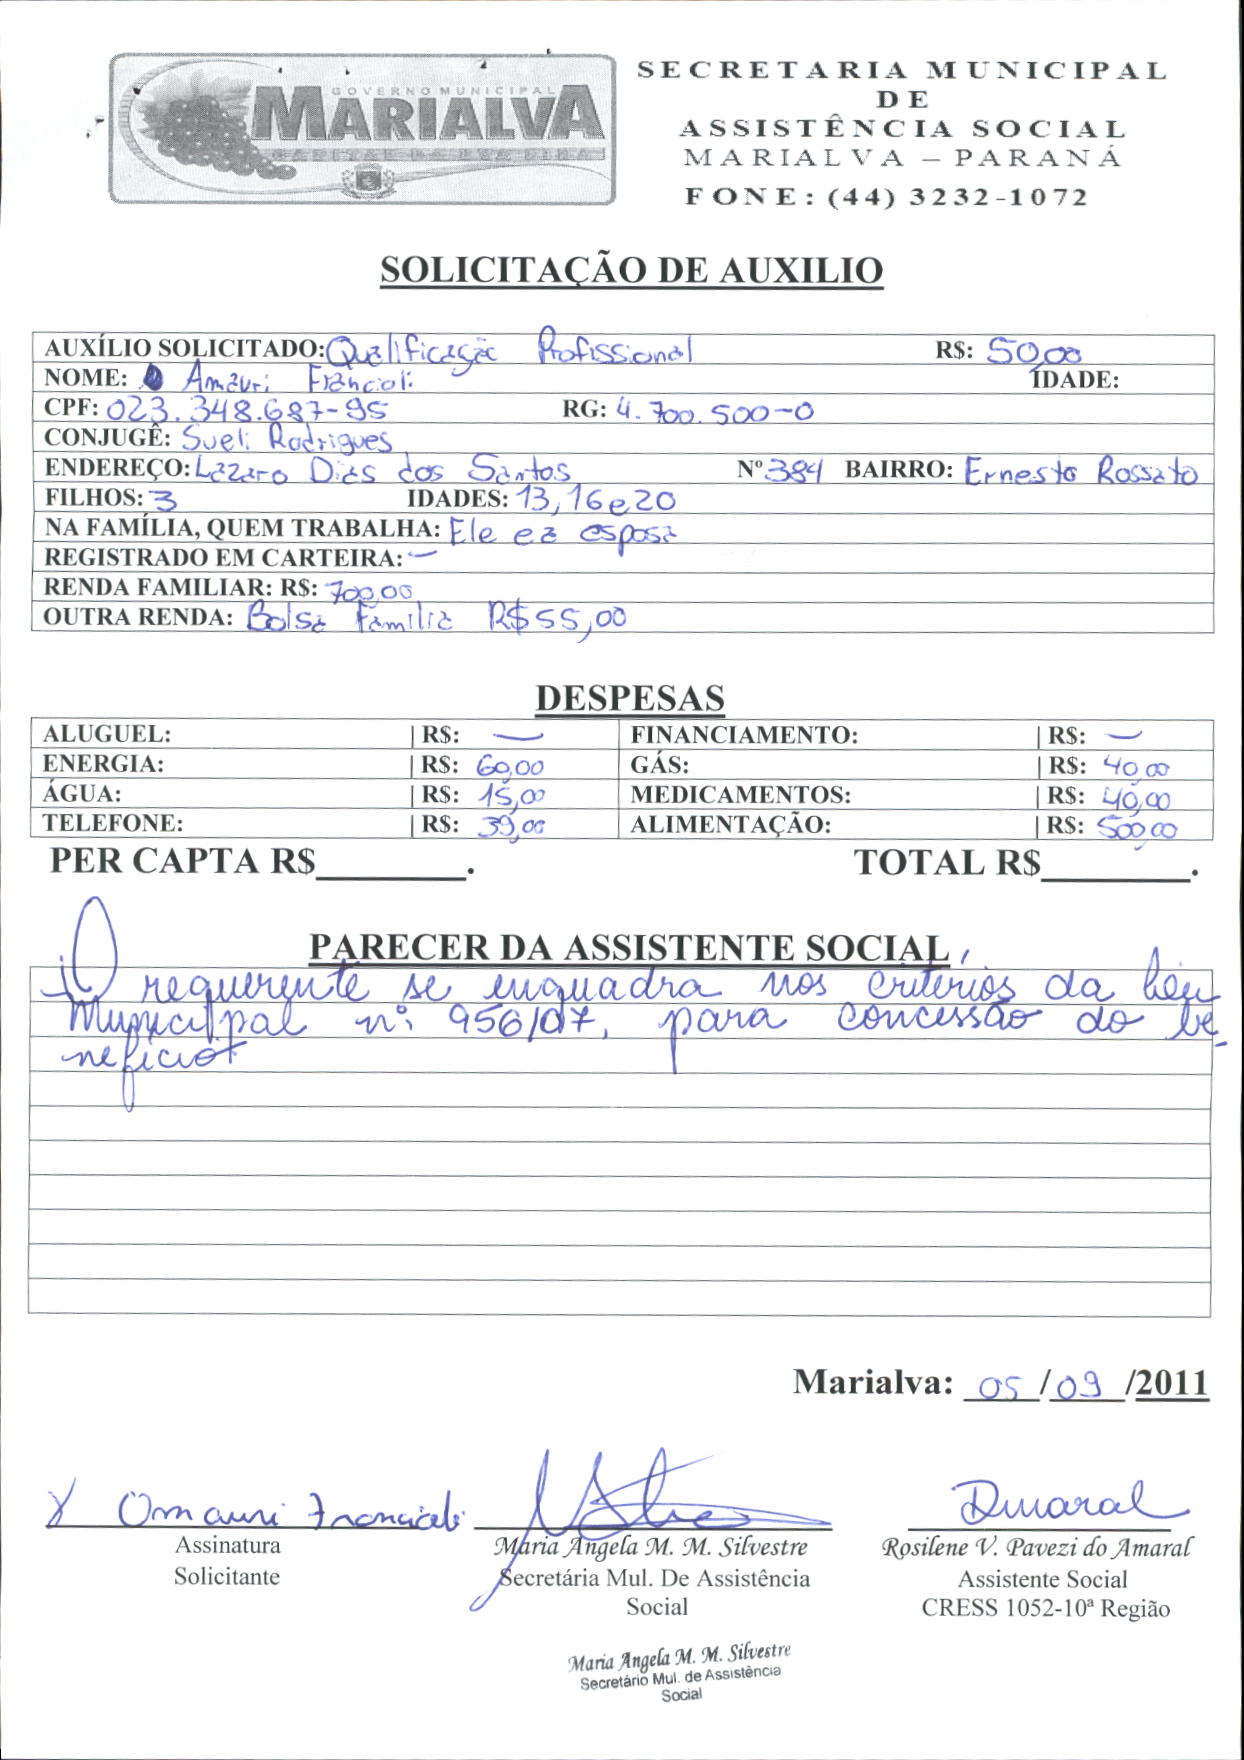 GOVERNO MUNICIPAL
MARIALVA
CAPITAL DA UVA FINA
SECRETARIA MUNICIPAL
DE
ASSISTÊNCIA SOCIAL
MARIALVA – PARANÁ
FONE: (44) 3232-1072
SOLICITAÇÃO DE AUXILIO
AUXÍLIO SOLICITADO: Qualificação Profissional R$: 50,00
NOME: Amauri Francioli IDADE:
CPF: 023.348.687-95 RG: 4.700.500-0
CONJUGÊ: Sueli Rodrigues
ENDEREÇO: Lazaro Dias dos Santos Nº 384 BAIRRO: Ernesto Rossato
FILHOS: 3 IDADES: 13, 16 e 20
NA FAMÍLIA, QUEM TRABALHA: Ele e a esposa
REGISTRADO EM CARTEIRA: –
RENDA FAMILIAR: R$: 700,00
OUTRA RENDA: Bolsa Família R$ 55,00
DESPESAS
ALUGUEL: | R$: — FINANCIAMENTO: | R$: —
ENERGIA: | R$: 60,00 GÁS: | R$: 40,00
ÁGUA: | R$: 15,00 MEDICAMENTOS: | R$: 40,00
TELEFONE: | R$: 39,00 ALIMENTAÇÃO: | R$: 500,00
PER CAPTA R$________. TOTAL R$________.
PARECER DA ASSISTENTE SOCIAL
O requerente se enquadra nos critérios da Lei
Municipal nº: 956/07, para concessão do be-
nefício.
Marialva: 05 / 09 /2011
X Omauri Francioli
Amaral
Assinatura
Solicitante
Maria Angela M. M. Silvestre
Secretária Mul. De Assistência
Social
Rosilene V. Pavezi do Amaral
Assistente Social
CRESS 1052-10ª Região
Maria Angela M. M. Silvestre
Secretário Mul. de Assistência
Social